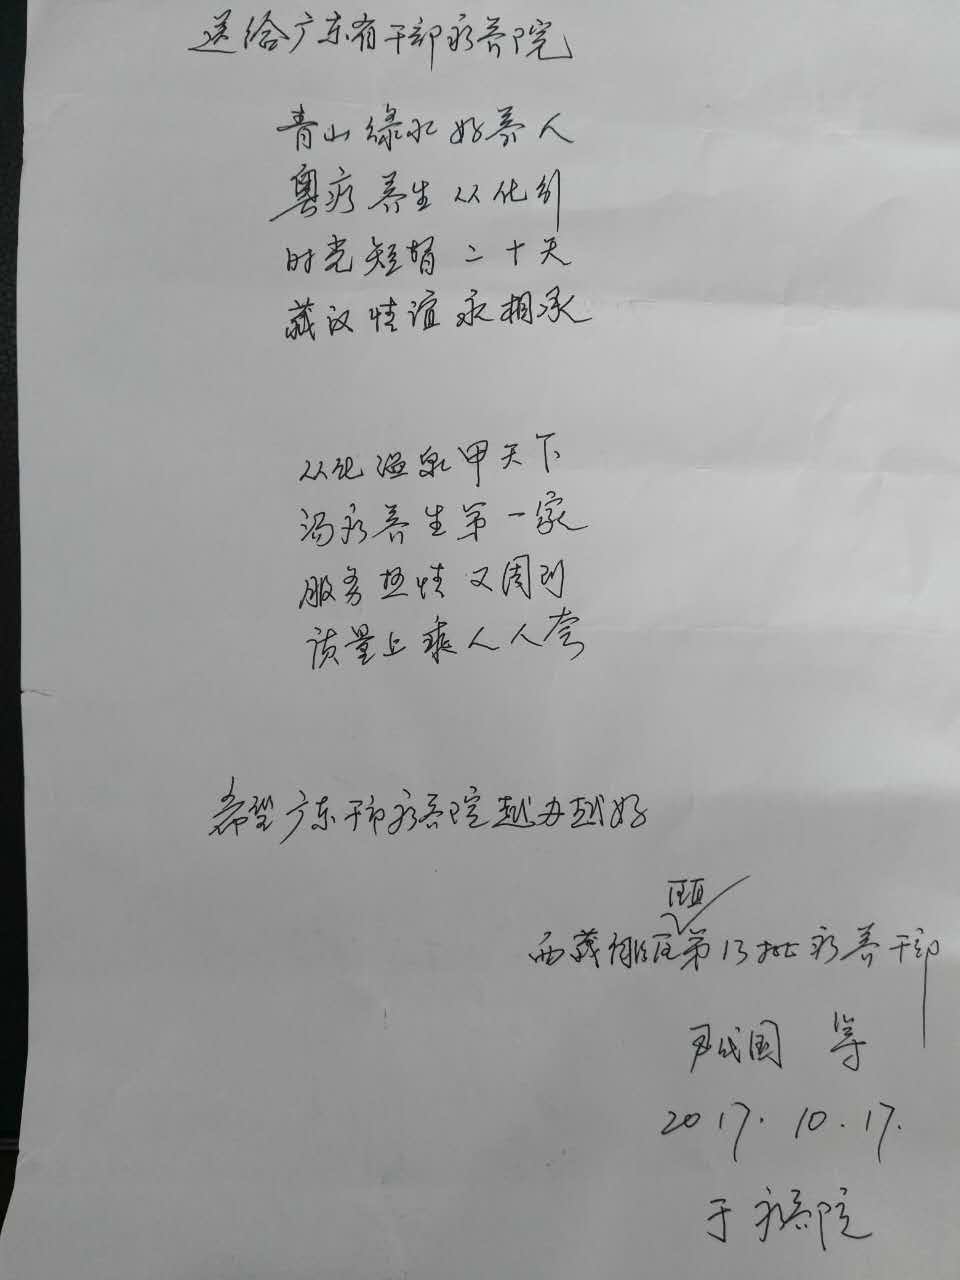 送给广东省干部疗养院
青山绿水好养人
粤疗养生从化行
时光短暂二十天
藏汉情谊永相承
从化温泉甲天下
汤疗养生第一家
服务热情又周到
质量上乘人人夸
希望广东干部疗养院越办越好
西藏第13批疗养干部
国 等
2017.10.17.
于疗养院